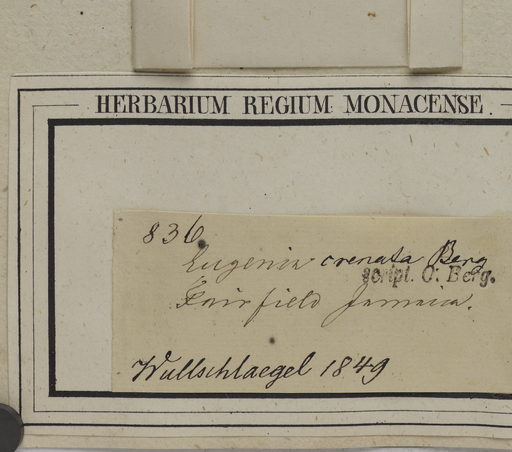 HERBARIUM REGIUM MONACENSE.
836
Eugenia crenata Berg
script. O. Berg.
Fairfield Jamaica.
Wullschlaegel 1849